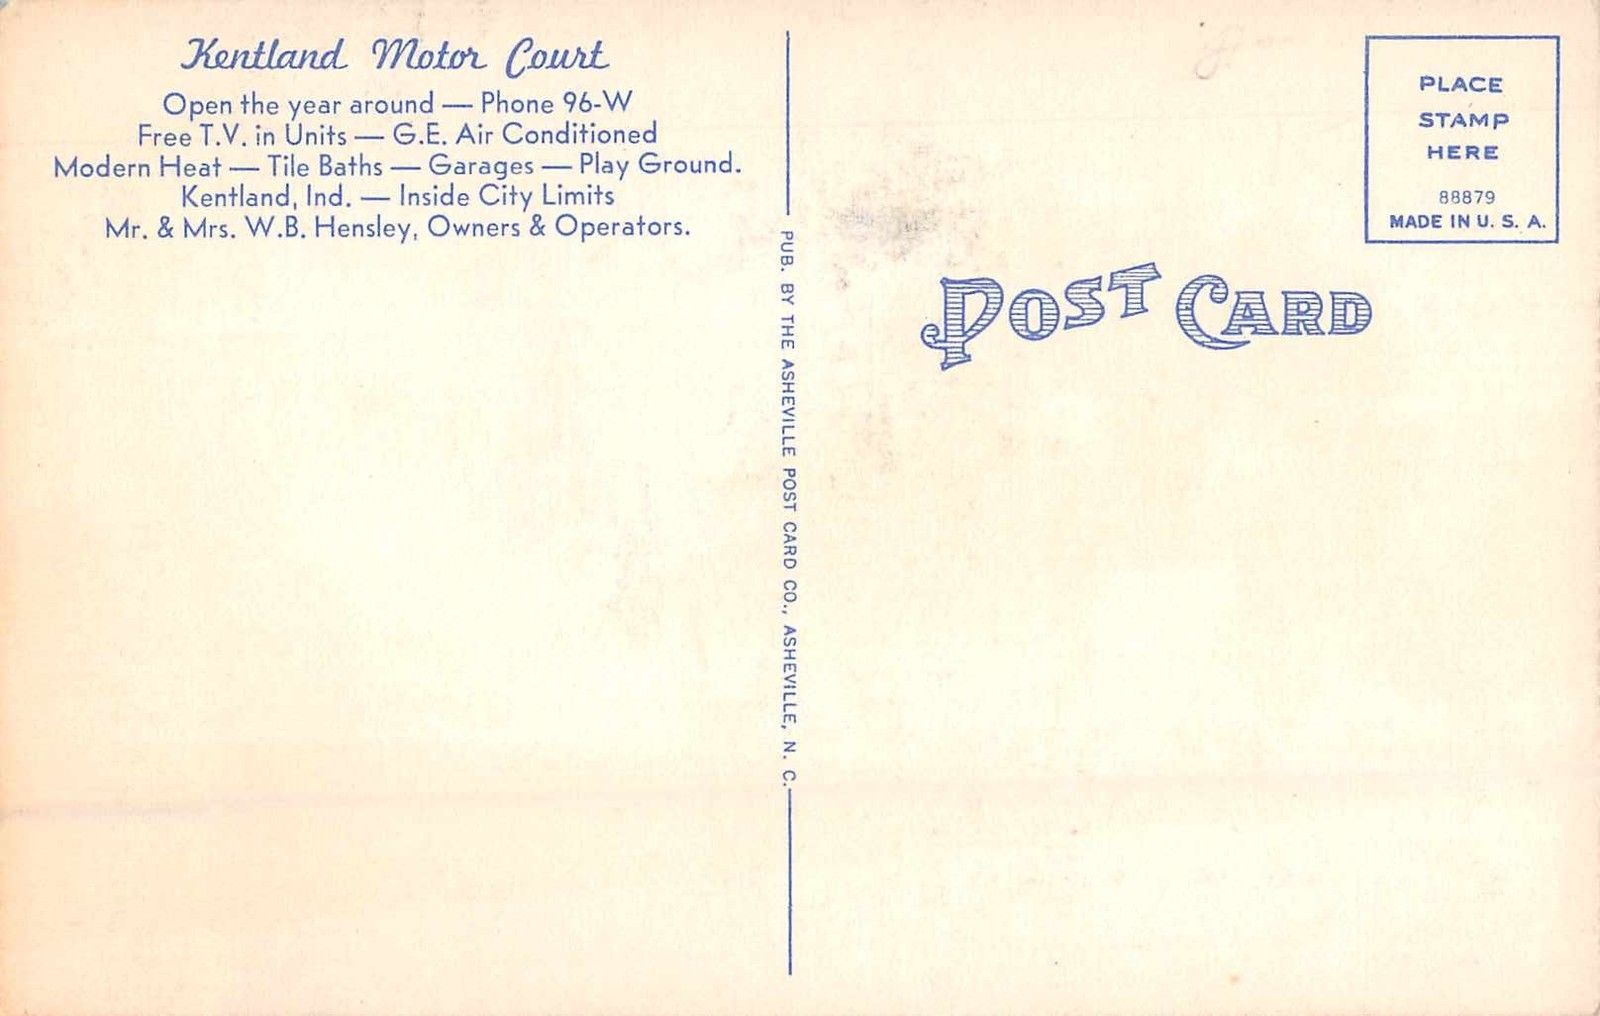 Kentland Motor Court
Open the year around — Phone 96-W
Free T.V. in Units — G.E. Air Conditioned
Modern Heat — Tile Baths — Garages — Play Ground.
Kentland, Ind. — Inside City Limits
Mr. & Mrs. W.B. Hensley, Owners & Operators.
PUB. BY THE ASHEVILLE POST CARD CO., ASHEVILLE, N. C.
POST CARD
PLACE
STAMP
HERE
88879
MADE IN U. S. A.